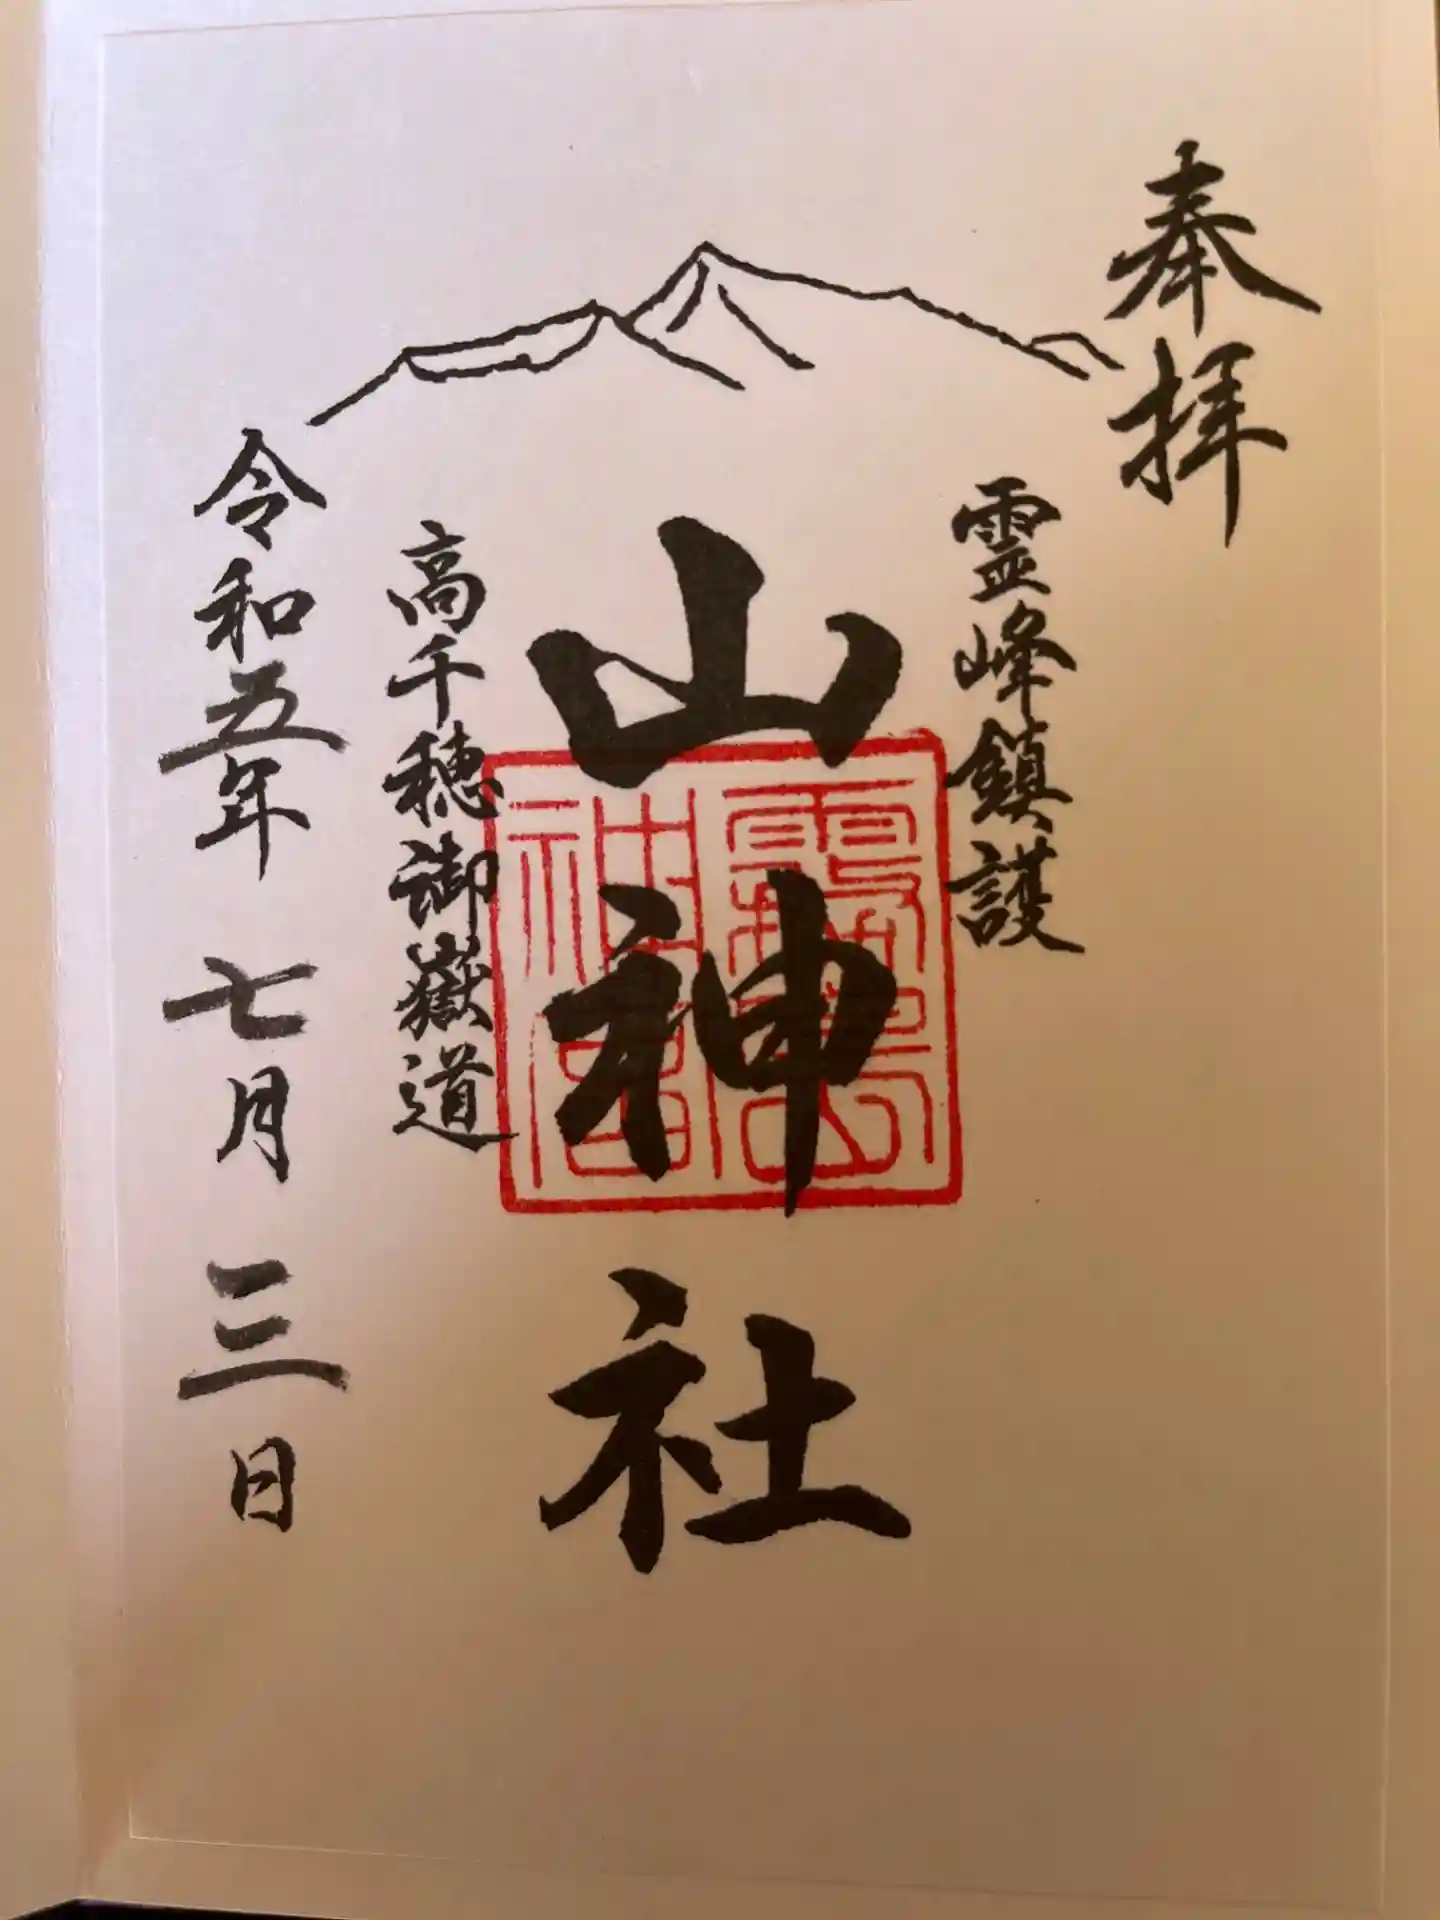 奉拝
霊峰鎮護
山神社
高千穂御嶽道
令和五年 七月 三日
霧島
神宮